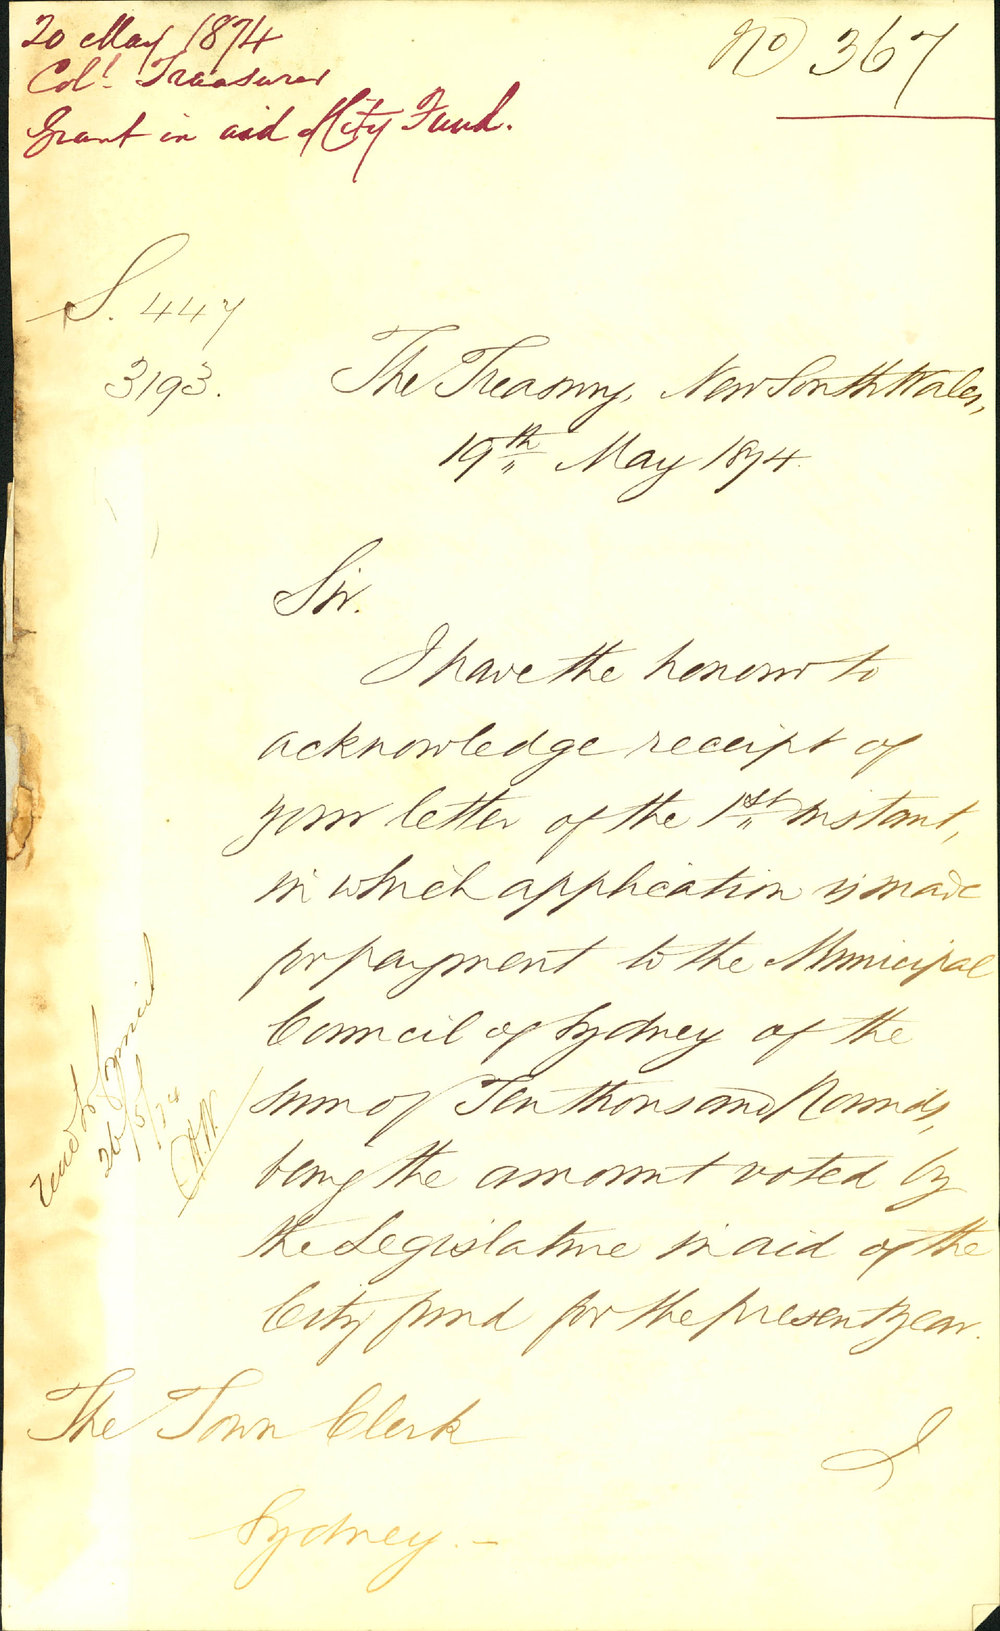 20 May 1874
Col.l Treasurer
Grant in aid of City Fund.
No 367
S. 447
3193.
The Treasury, New South Wales,
19th May 1874.
Sir.
I have the honour to
acknowledge receipt of
your letter of the 1st instant,
in which application is made
for payment to the Municipal
Council of Sydney of the
sum of Ten thousand Pounds,
being the amount voted by
the Legislature in aid of the
City fund for the present year.
Read to Council
26/5/74
The Town Clerk
Sydney. -
I